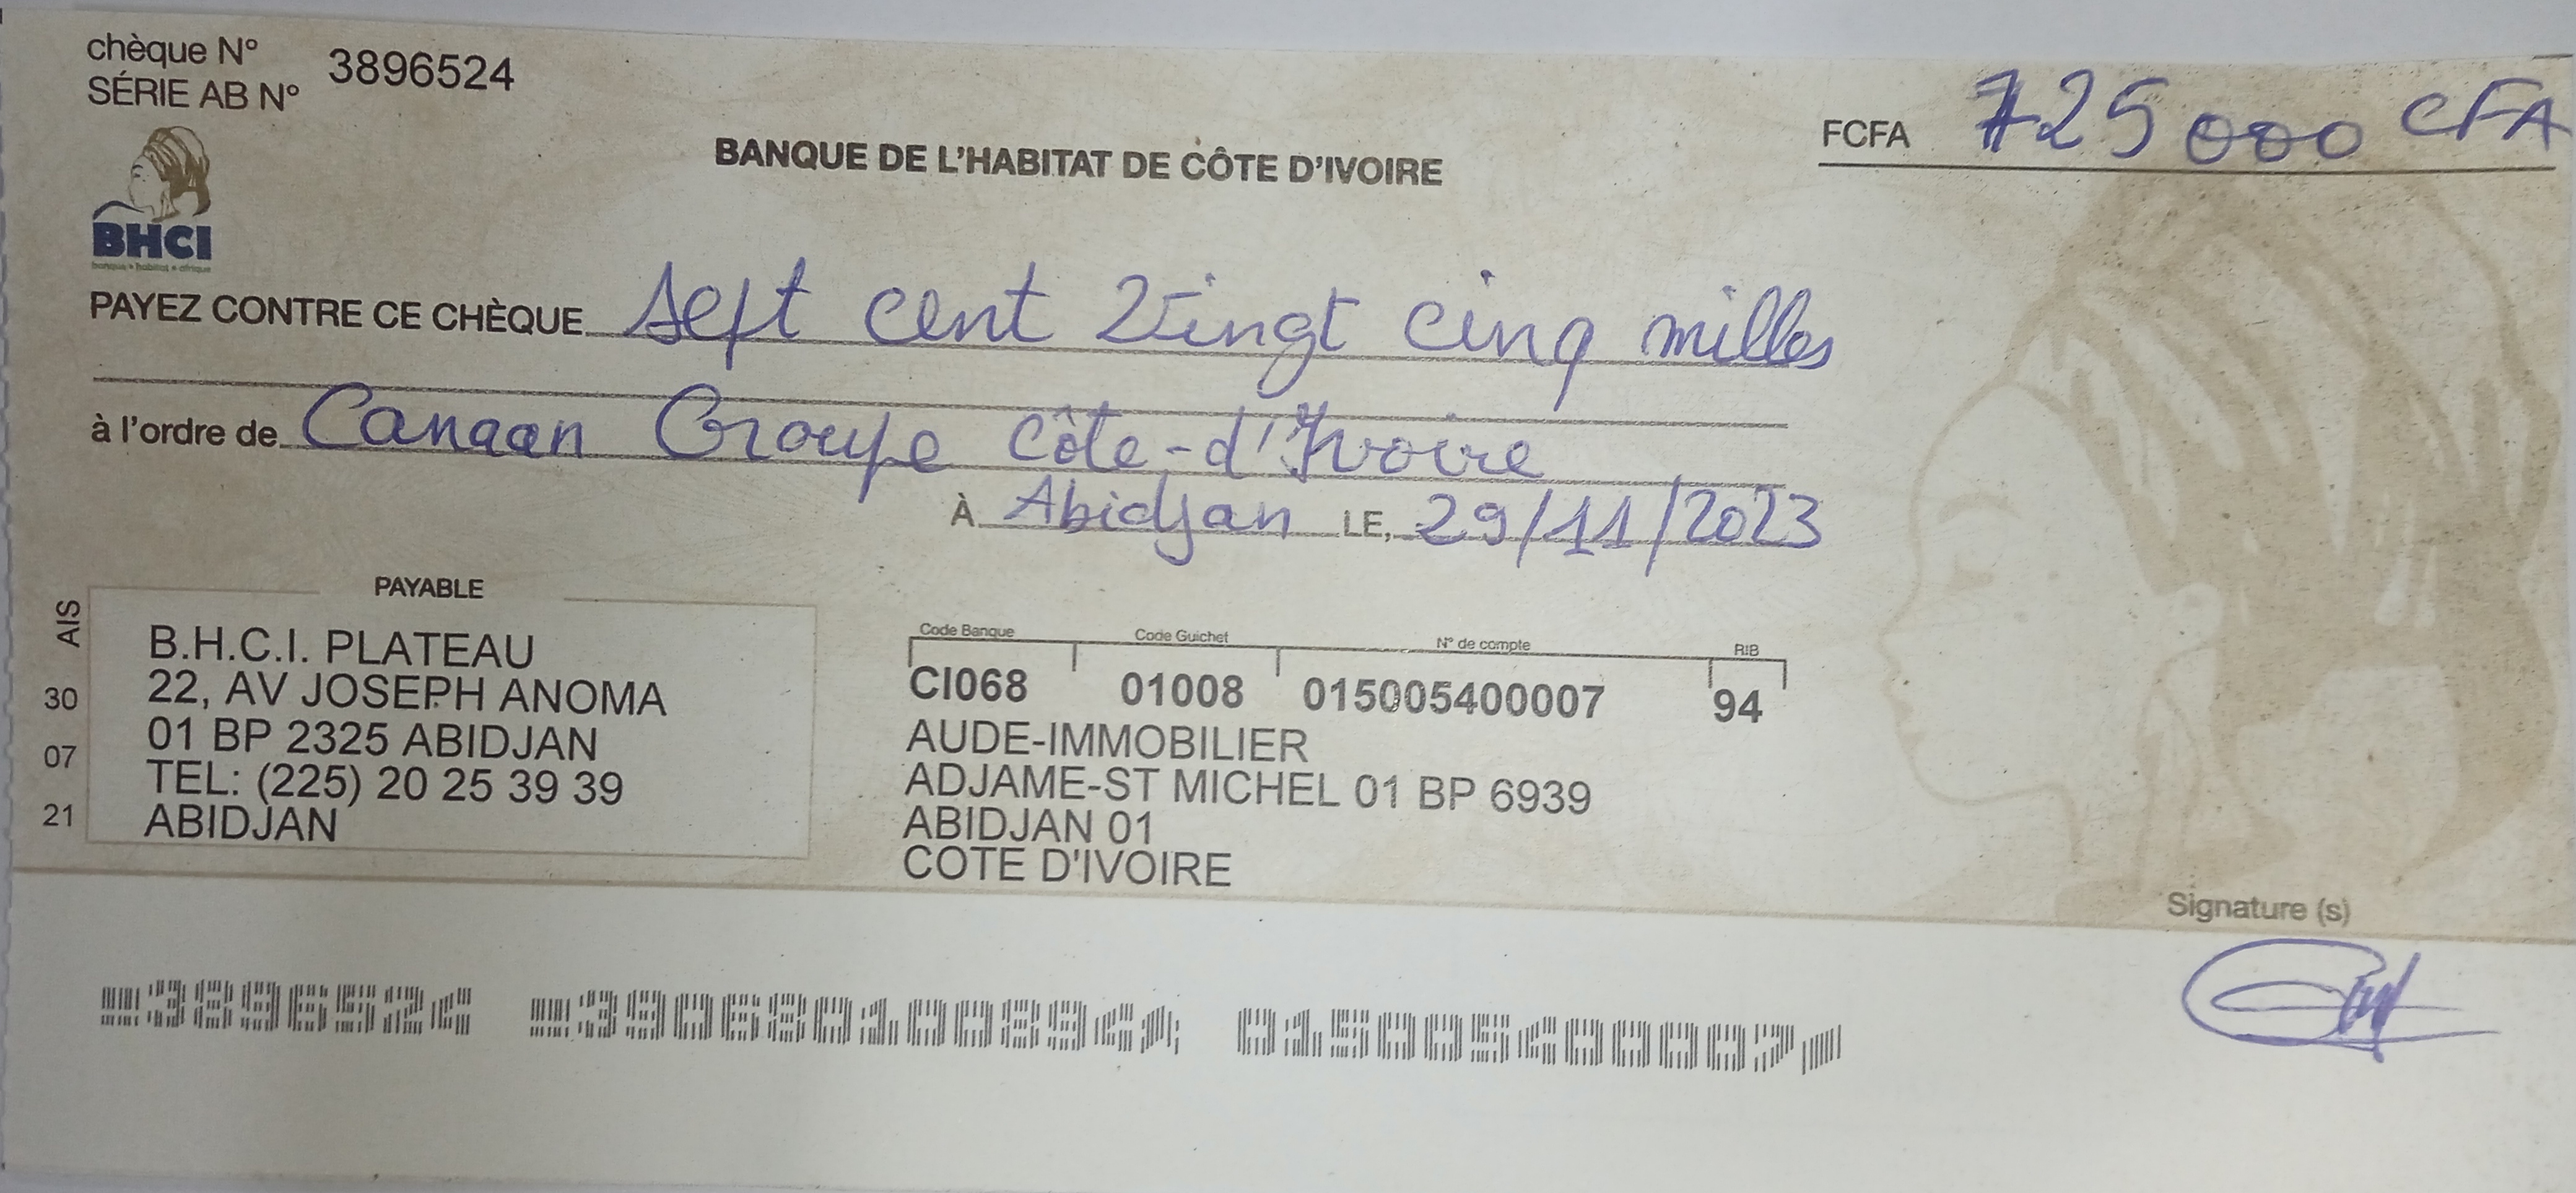 chèque N° 3896524
SÉRIE AB N°
BHCI
banque • habitat • afrique
BANQUE DE L'HABITAT DE CÔTE D'IVOIRE
FCFA 725 000 CFA
PAYEZ CONTRE CE CHÈQUE sept cent Vingt cinq milles
à l'ordre de Canaan Groupe Côte-d'Ivoire
À Abidjan LE, 29/11/2023
PAYABLE
AIS
30
07
21
B.H.C.I. PLATEAU
22, AV JOSEPH ANOMA
01 BP 2325 ABIDJAN
TEL: (225) 20 25 39 39
ABIDJAN
Code Banque Code Guichet N° de compte RIB
CI068 01008 015005400007 94
AUDE-IMMOBILIER
ADJAME-ST MICHEL 01 BP 6939
ABIDJAN 01
COTE D'IVOIRE
Signature (s)
3896524 390680100894 015005400007